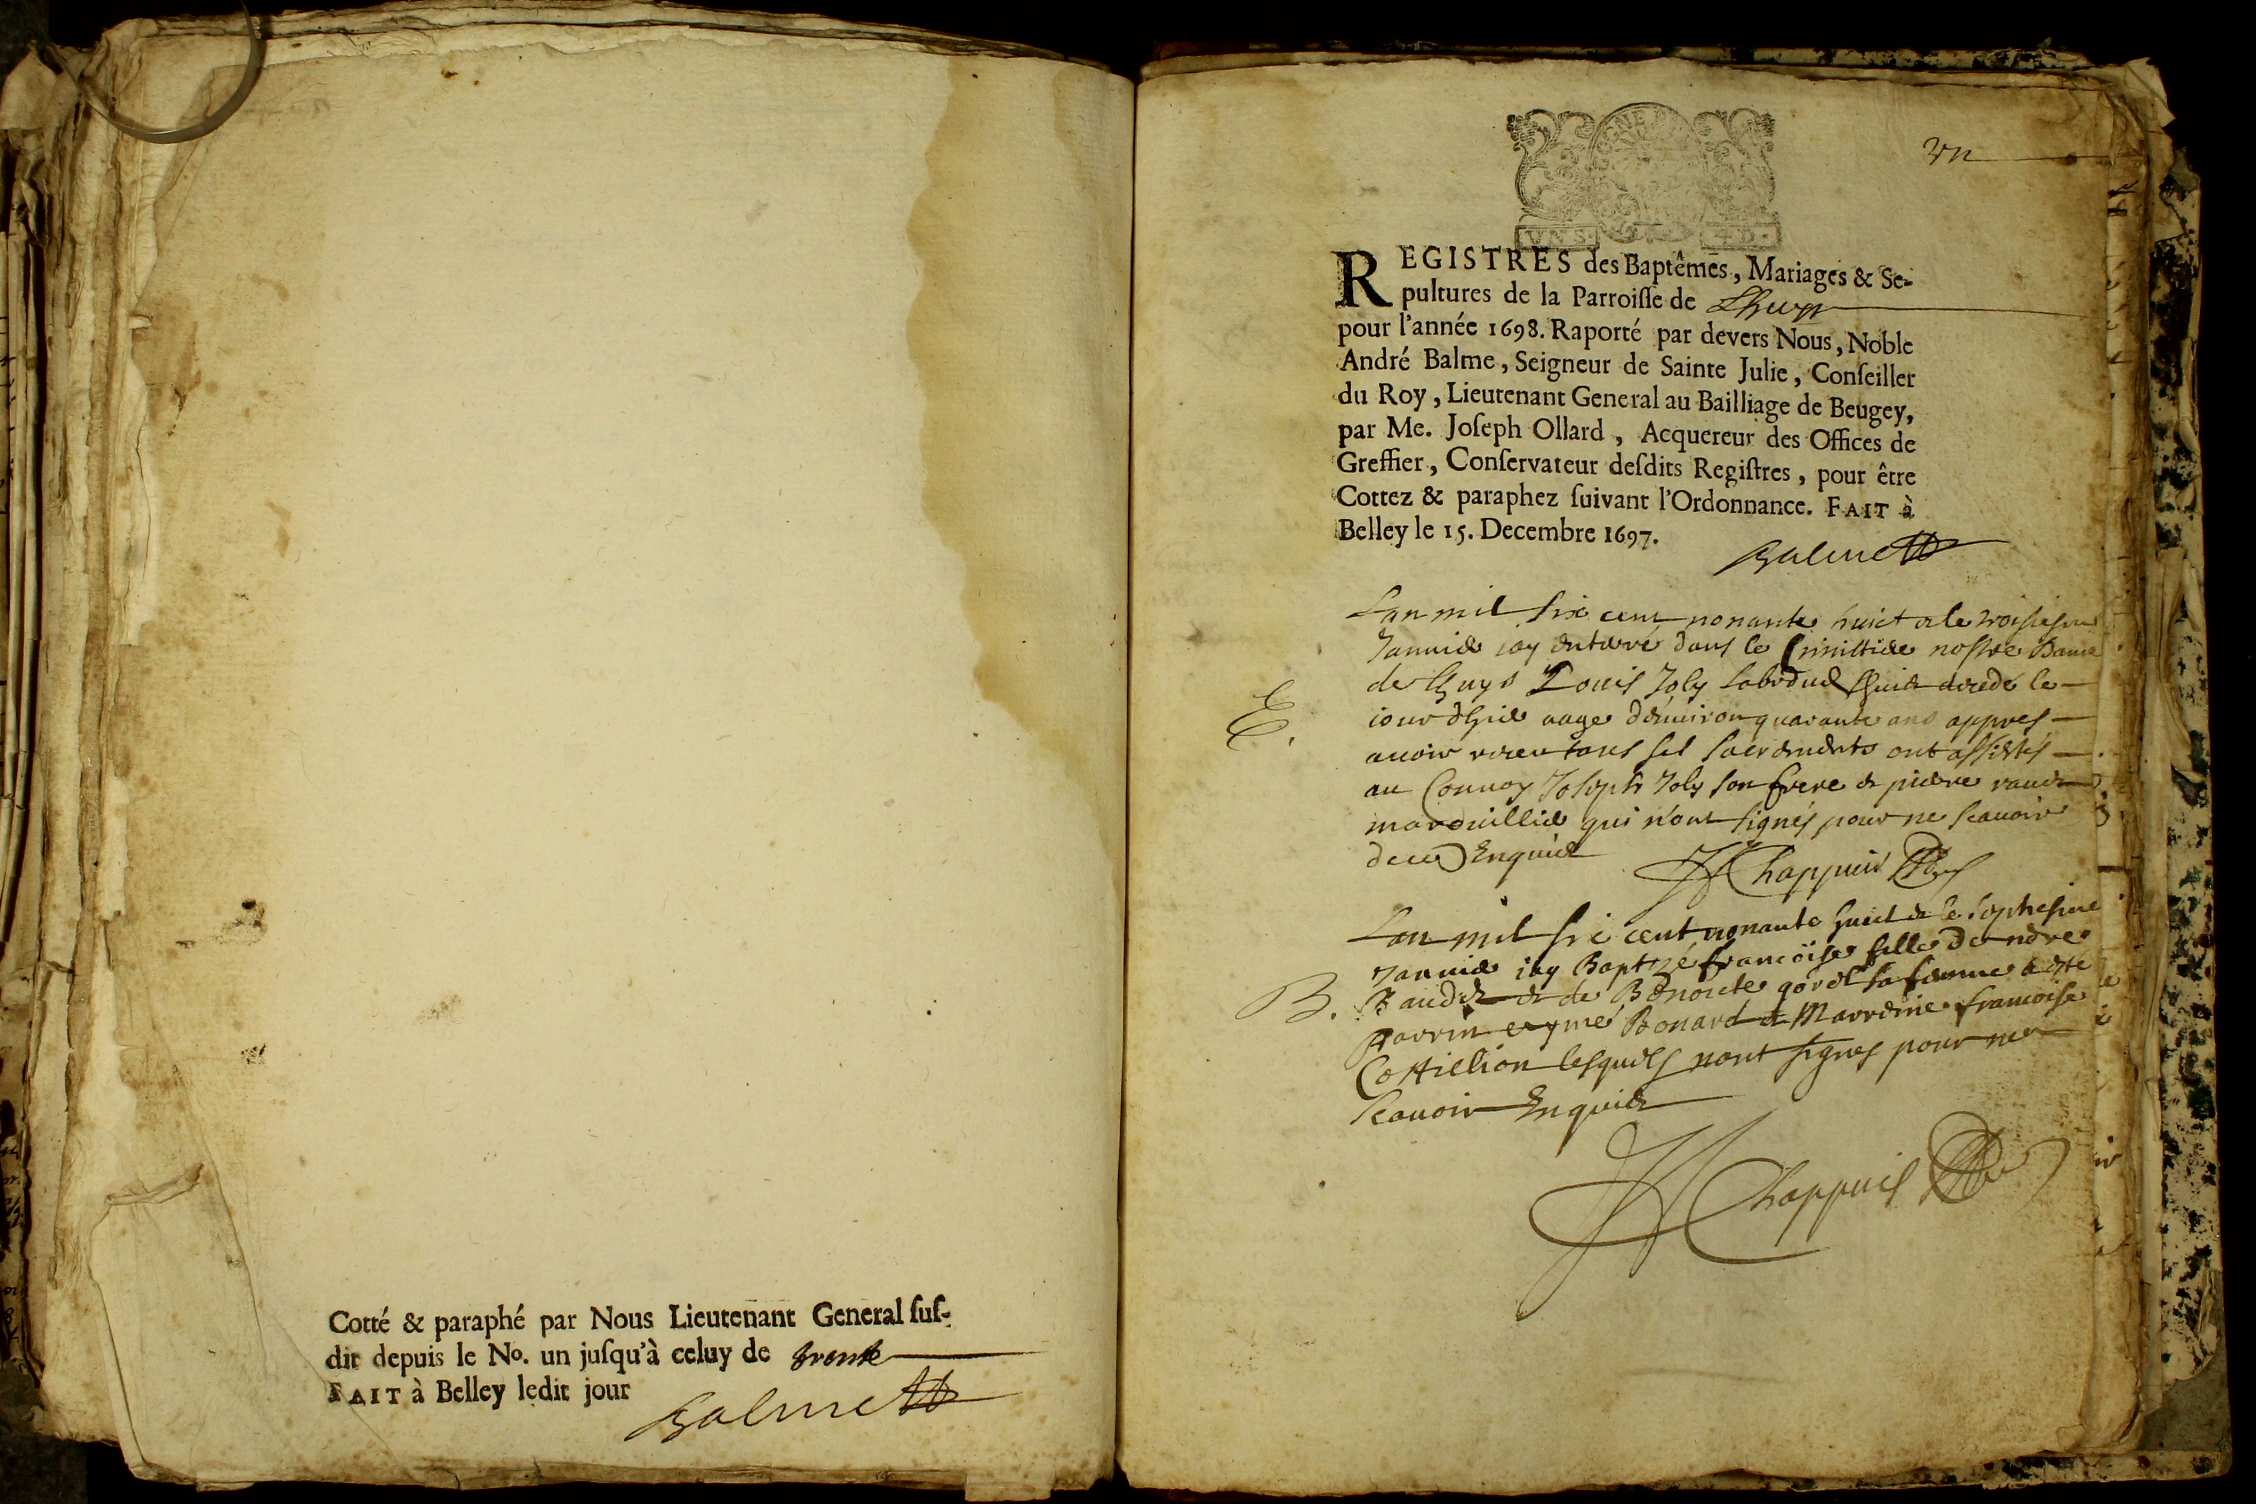 Cotté & paraphé par Nous Lieutenant General ſuſ-
dit depuis le No. un juſqu'à celuy de trente
FAIT à Belley ledit jour
Balme
un
REGISTRES des Baptêmes, Mariages & Se-
pultures de la Parroiſſe de Lhuys
pour l'année 1698. Raporté par devers Nous, Noble
André Balme, Seigneur de Sainte Julie, Conſeiller
du Roy, Lieutenant General au Bailliage de Beugey,
par Me. Joſeph Ollard, Acquereur des Offices de
Greffier, Conſervateur deſdits Regiſtres, pour être
Cottez & paraphez ſuivant l'Ordonnance. FAIT à
Belley le 15. Decembre 1697.
Balme
Lan mil six cent nonante huict & le troisiesme
Janvier jay enterré dans le Cimittiere nostre Dame
de Lhuys Louis Joly decedé le
jour dhier aagé denviron quarante ans appres
avoir receu tous ses sacrements ont assistés
au Convoy Joseph Joly son frere & pierre
marouillier qui n'ont signés pour ne scavoir
de ce Enquis
E.
Chappuis
Lan mil six cent nonante huict & le septiesme
Janvier jay Baptizé francoise fille
B.
& de Benoicte sa femme a esté
Parrin eymé Bonard & Marreine francoise
Costillion lesquels nont signes pour ne
scavoir Enquis
Chappuis